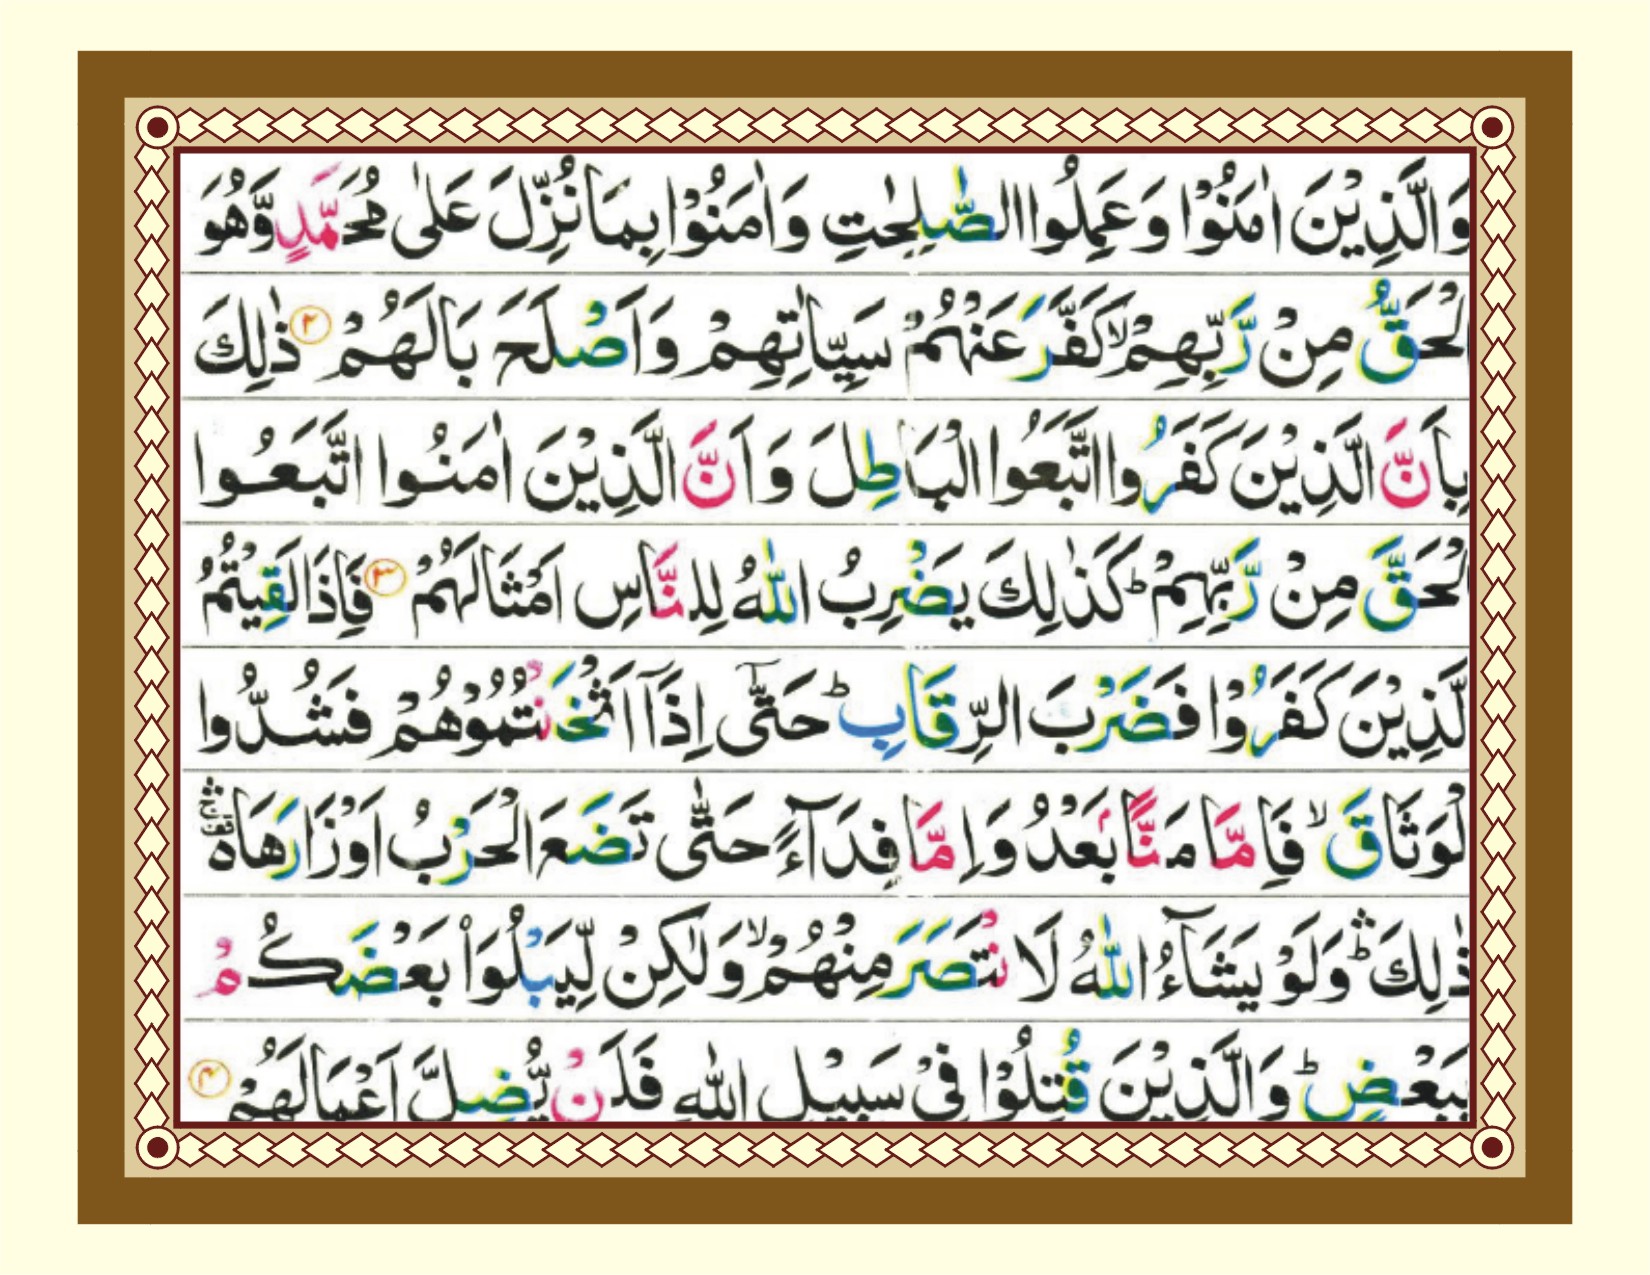 وَالَّذِيْنَ اٰمَنُوْا وَعَمِلُوا الصّٰلِحٰتِ وَاٰمَنُوْا بِمَا نُزِّلَ عَلٰى مُحَمَّدٍ وَّهُوَ
الْحَقُّ مِنْ رَّبِّهِمْ ۙ كَفَّرَ عَنْهُمْ سَيِّاٰتِهِمْ وَاَصْلَحَ بَالَهُمْ ۲ ذٰلِكَ
بِاَنَّ الَّذِيْنَ كَفَرُوا اتَّبَعُوا الْبَاطِلَ وَاَنَّ الَّذِيْنَ اٰمَنُوا اتَّبَعُوا
الْحَقَّ مِنْ رَّبِّهِمْ ؕ كَذٰلِكَ يَضْرِبُ اللّٰهُ لِلنَّاسِ اَمْثَالَهُمْ ۳ فَاِذَا لَقِيْتُمُ
الَّذِيْنَ كَفَرُوْا فَضَرْبَ الرِّقَابِ ؕ حَتّٰٓى اِذَاۤ اَثْخَنْتُمُوْهُمْ فَشُدُّوا
الْوَثَاقَ ۙ فَاِمَّا مَنًّا بَعْدُ وَاِمَّا فِدَآءً حَتّٰى تَضَعَ الْحَرْبُ اَوْزَارَهَا ۛ۫
ذٰلِكَ ۛؕ وَلَوْ يَشَآءُ اللّٰهُ لَانْتَصَرَ مِنْهُمْ ۙ وَلٰكِنْ لِّيَبْلُوَا۟ بَعْضَكُمْ
بِبَعْضٍ ؕ وَالَّذِيْنَ قُتِلُوْا فِيْ سَبِيْلِ اللّٰهِ فَلَنْ يُّضِلَّ اَعْمَالَهُمْ ۴